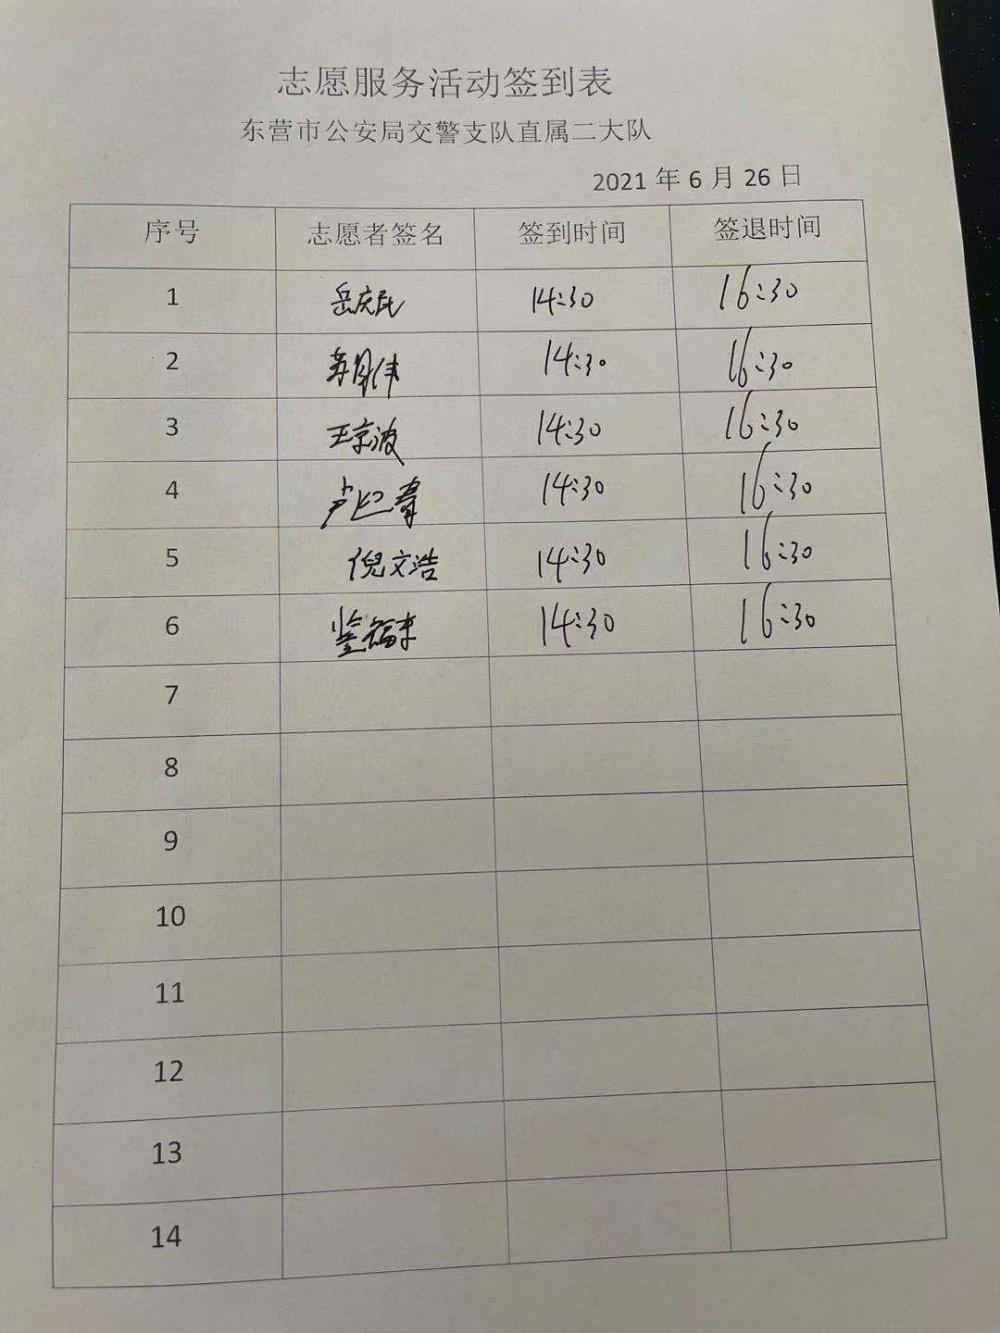 志愿服务活动签到表
东营市公安局交警支队直属二大队
2021 年 6 月 26 日
序号 志愿者签名 签到时间 签退时间
1 岳庆民 14:30 16:30
2 14:30 16:30
3 王京波 14:30 16:30
4 卢 14:30 16:30
5 倪文浩 14:30 16:30
6 14:30 16:30
7
8
9
10
11
12
13
14